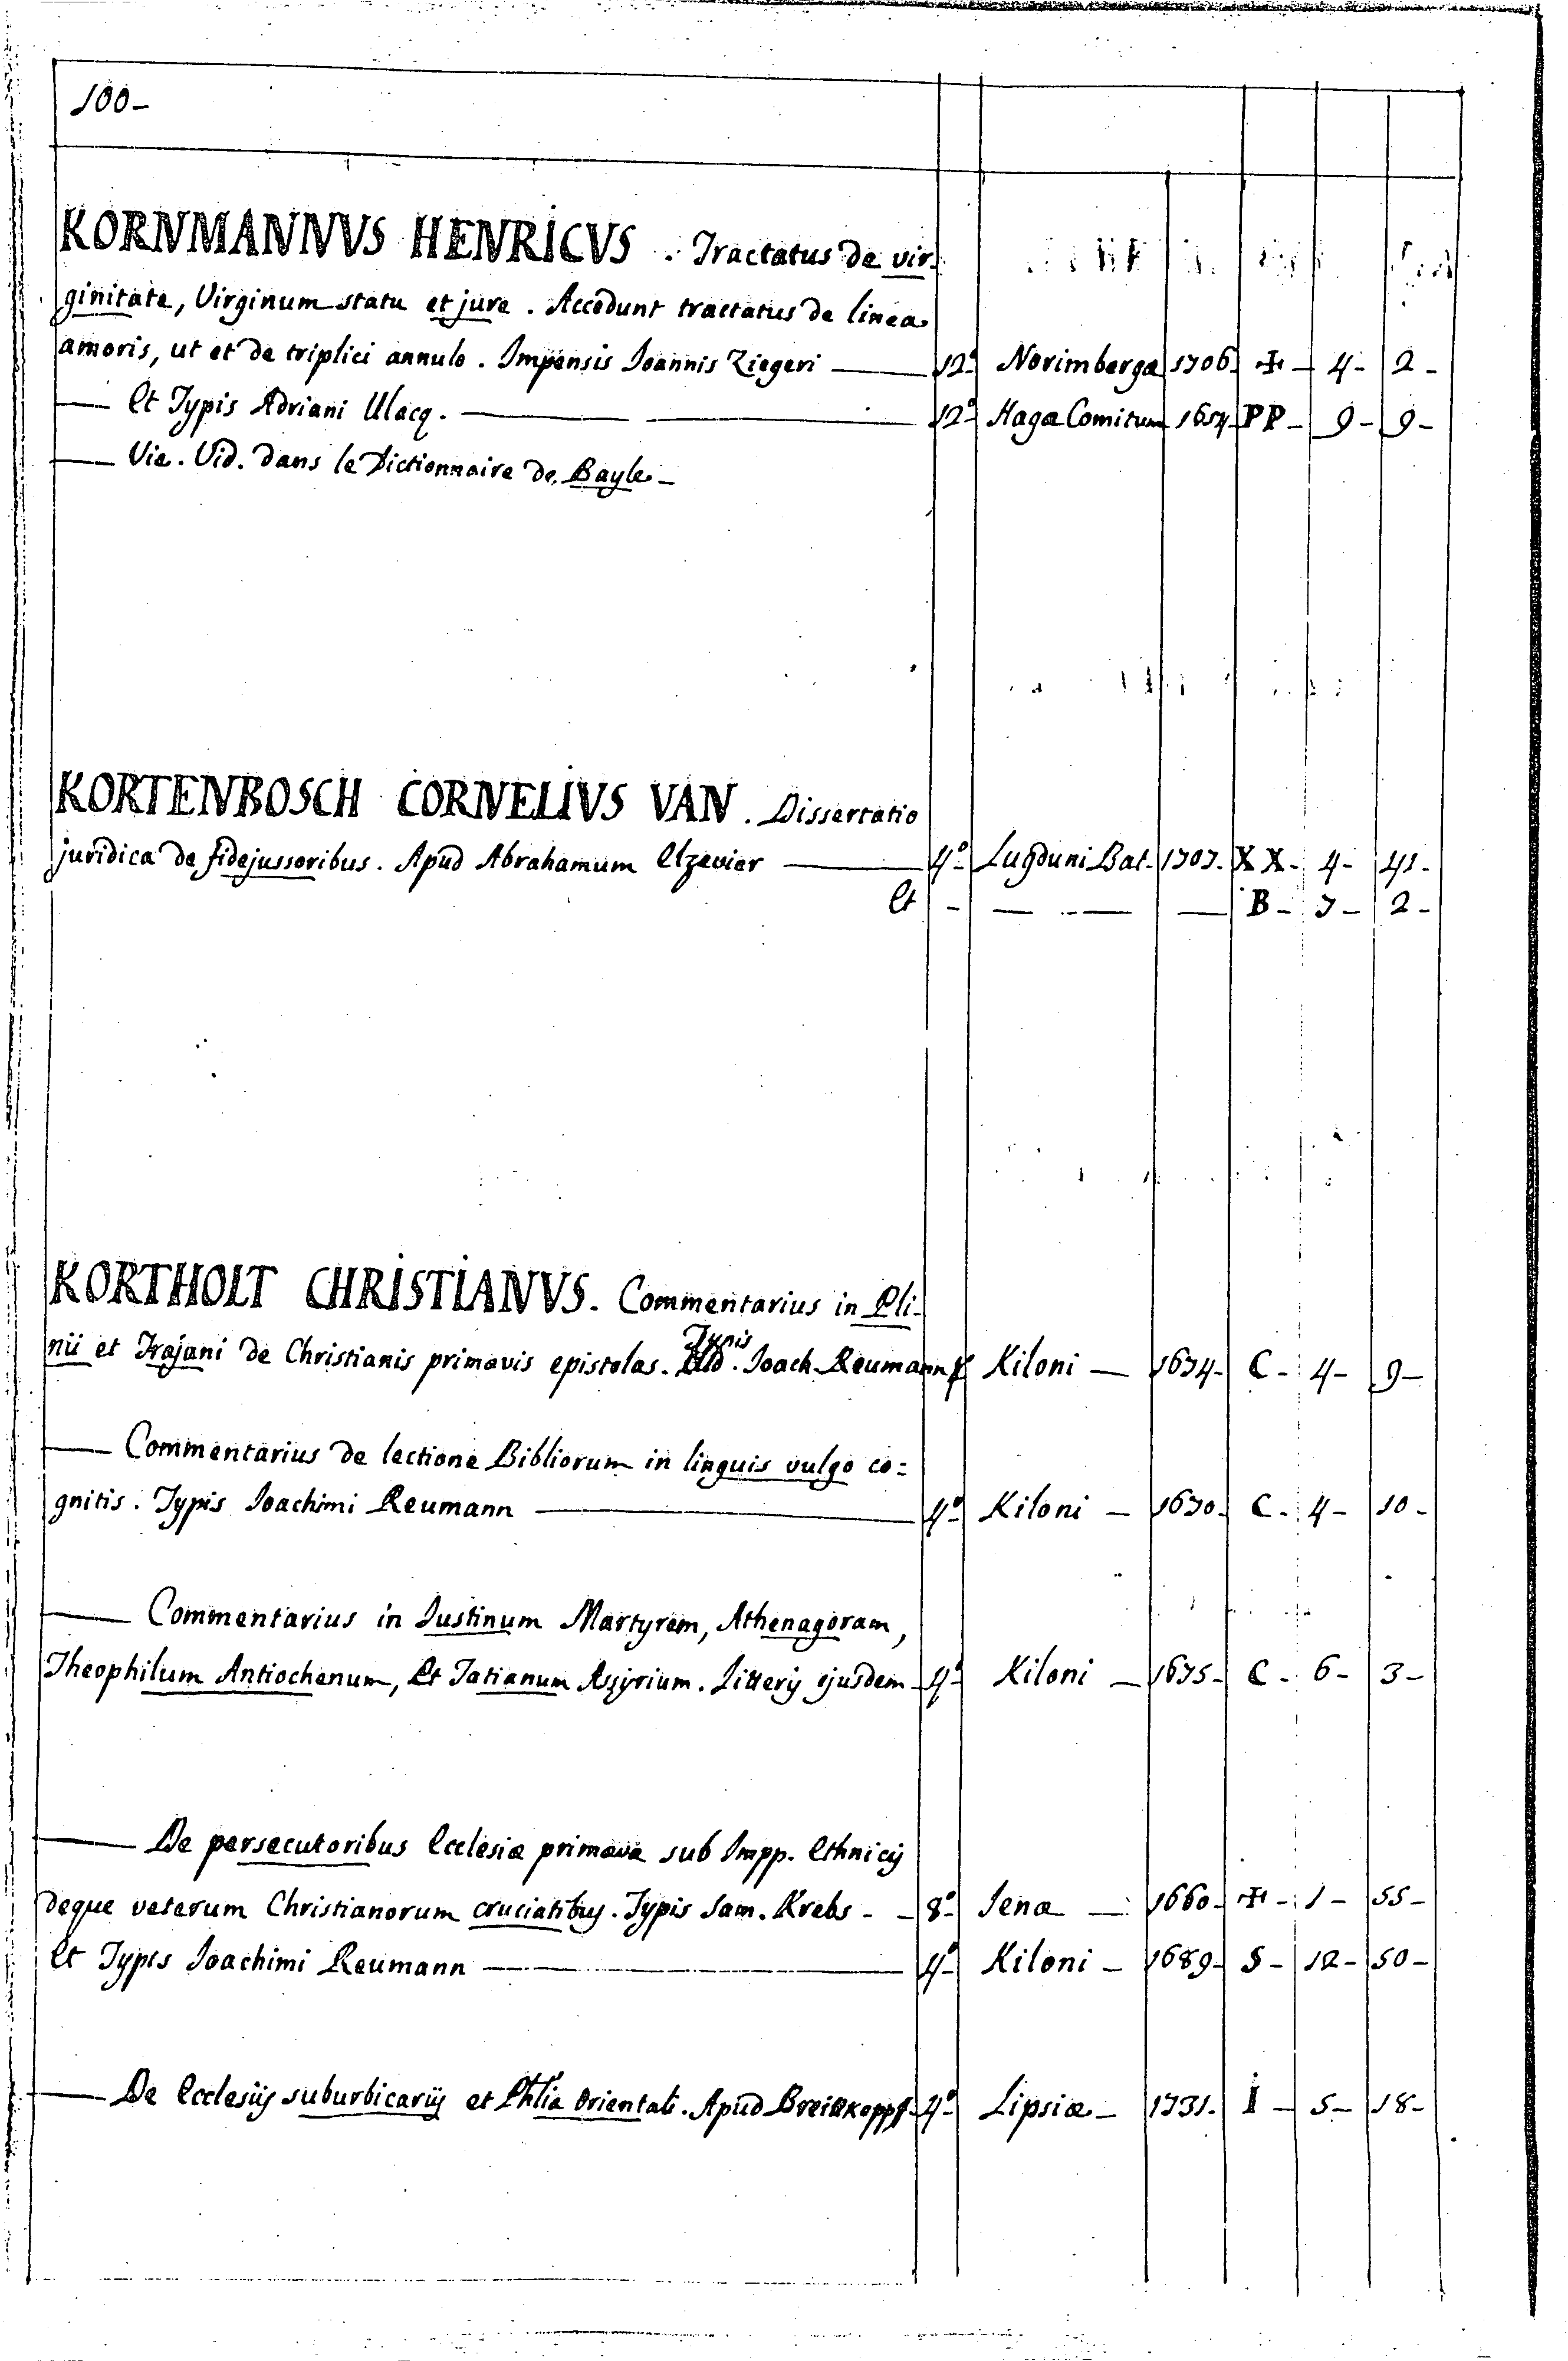 100-
KORNMANNVS HENRICVS. Tractatus de vir-
ginitate, Virginum statu et jure. Accedunt tractatus de linea
amoris, ut et de triplici annulo. Impensis Joannis Ziegeri — 12° Norimbergæ 1706. ✠ - 4 - 2 -
— Et Typis Adriani Ulacq. — 12° Hagæ Comitum 1654. PP - 9 - 9 -
— Vie. Vid. dans le Dictionnaire de Bayle -
KORTENBOSCH CORNELIVS VAN. Dissertatio
juridica de fidejussoribus. Apud Abrahamum Elzevier — 4° Lugduni Bat. 1707. XX - 4 - 41 -
Et - — — — B - 7 - 2 -
KORTHOLT CHRISTIANVS. Commentarius in Pli-
nii et Trajani de Christianis primævis epistolas. Typis Joach. Reumann 4° Kiloni — 1674 - C - 4 - 9 -
— Commentarius de lectione Bibliorum in linguis vulgo co=
gnitis. Typis Joachimi Reumann — 4° Kiloni — 1670. C - 4 - 10 -
— Commentarius in Justinum Martyrem, Athenagoram,
Theophilum Antiochenum, et Tatianum Assyrium. Litterij ejusdem - 4° Kiloni — 1675 - C - 6 - 3 -
— De persecutoribus Ecclesiæ primævæ sub Impp. Ethnicij
deque veterum Christianorum cruciatibus. Typis Sam. Krebs - 8° Jenæ — 1660 - ✠ - 1 - 55 -
Et Typis Joachimi Reumann — 4° Kiloni - 1689 - S - 12 - 50 -
— De Ecclesijs suburbicarijs et orientali. Apud Breitkoppf - 4° Lipsiæ - 1731. I - 5 - 18 -